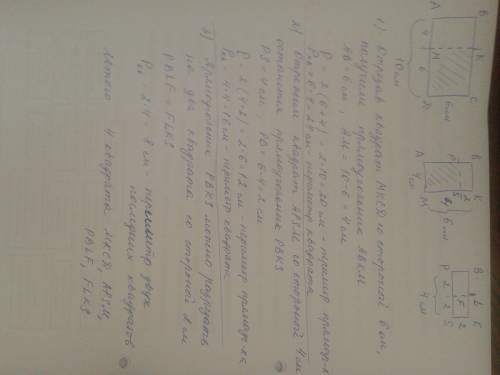 A B
4
M K
6
D C
6 см
10 см
A P B
4 см
M S K
6 см
P B
2 2
S F 2 K
4 см
1) Отрезав квадрат MKCD со стороной 6 см,
получили прямоугольник ABKM
AB = 6 см, AM = 10 - 6 = 4 см
P = 2 (6+4) = 2·10 = 20 см - периметр прямоуг-ка
Pкв = 6·4 = 24 см - периметр квадрата
2) Отрежем квадрат APSM со стороной 4 см
останется прямоугольник PBKS
PS = 4 см, PB = 6 - 4 = 2 см
P = 2 (4+2) = 2·6 = 12 см - периметр прямоуг-ка
Pкв = 4·4 = 16 см - периметр квадрата
3) Прямоугольник PBKS можно разрезать
на два квадрата со стороной 2 см
PBLF = FLKS
Pкв = 2·4 = 8 см - периметр двух
последних квадратов
4 квадрата MKCD, APSM,
PBLF, FLKS